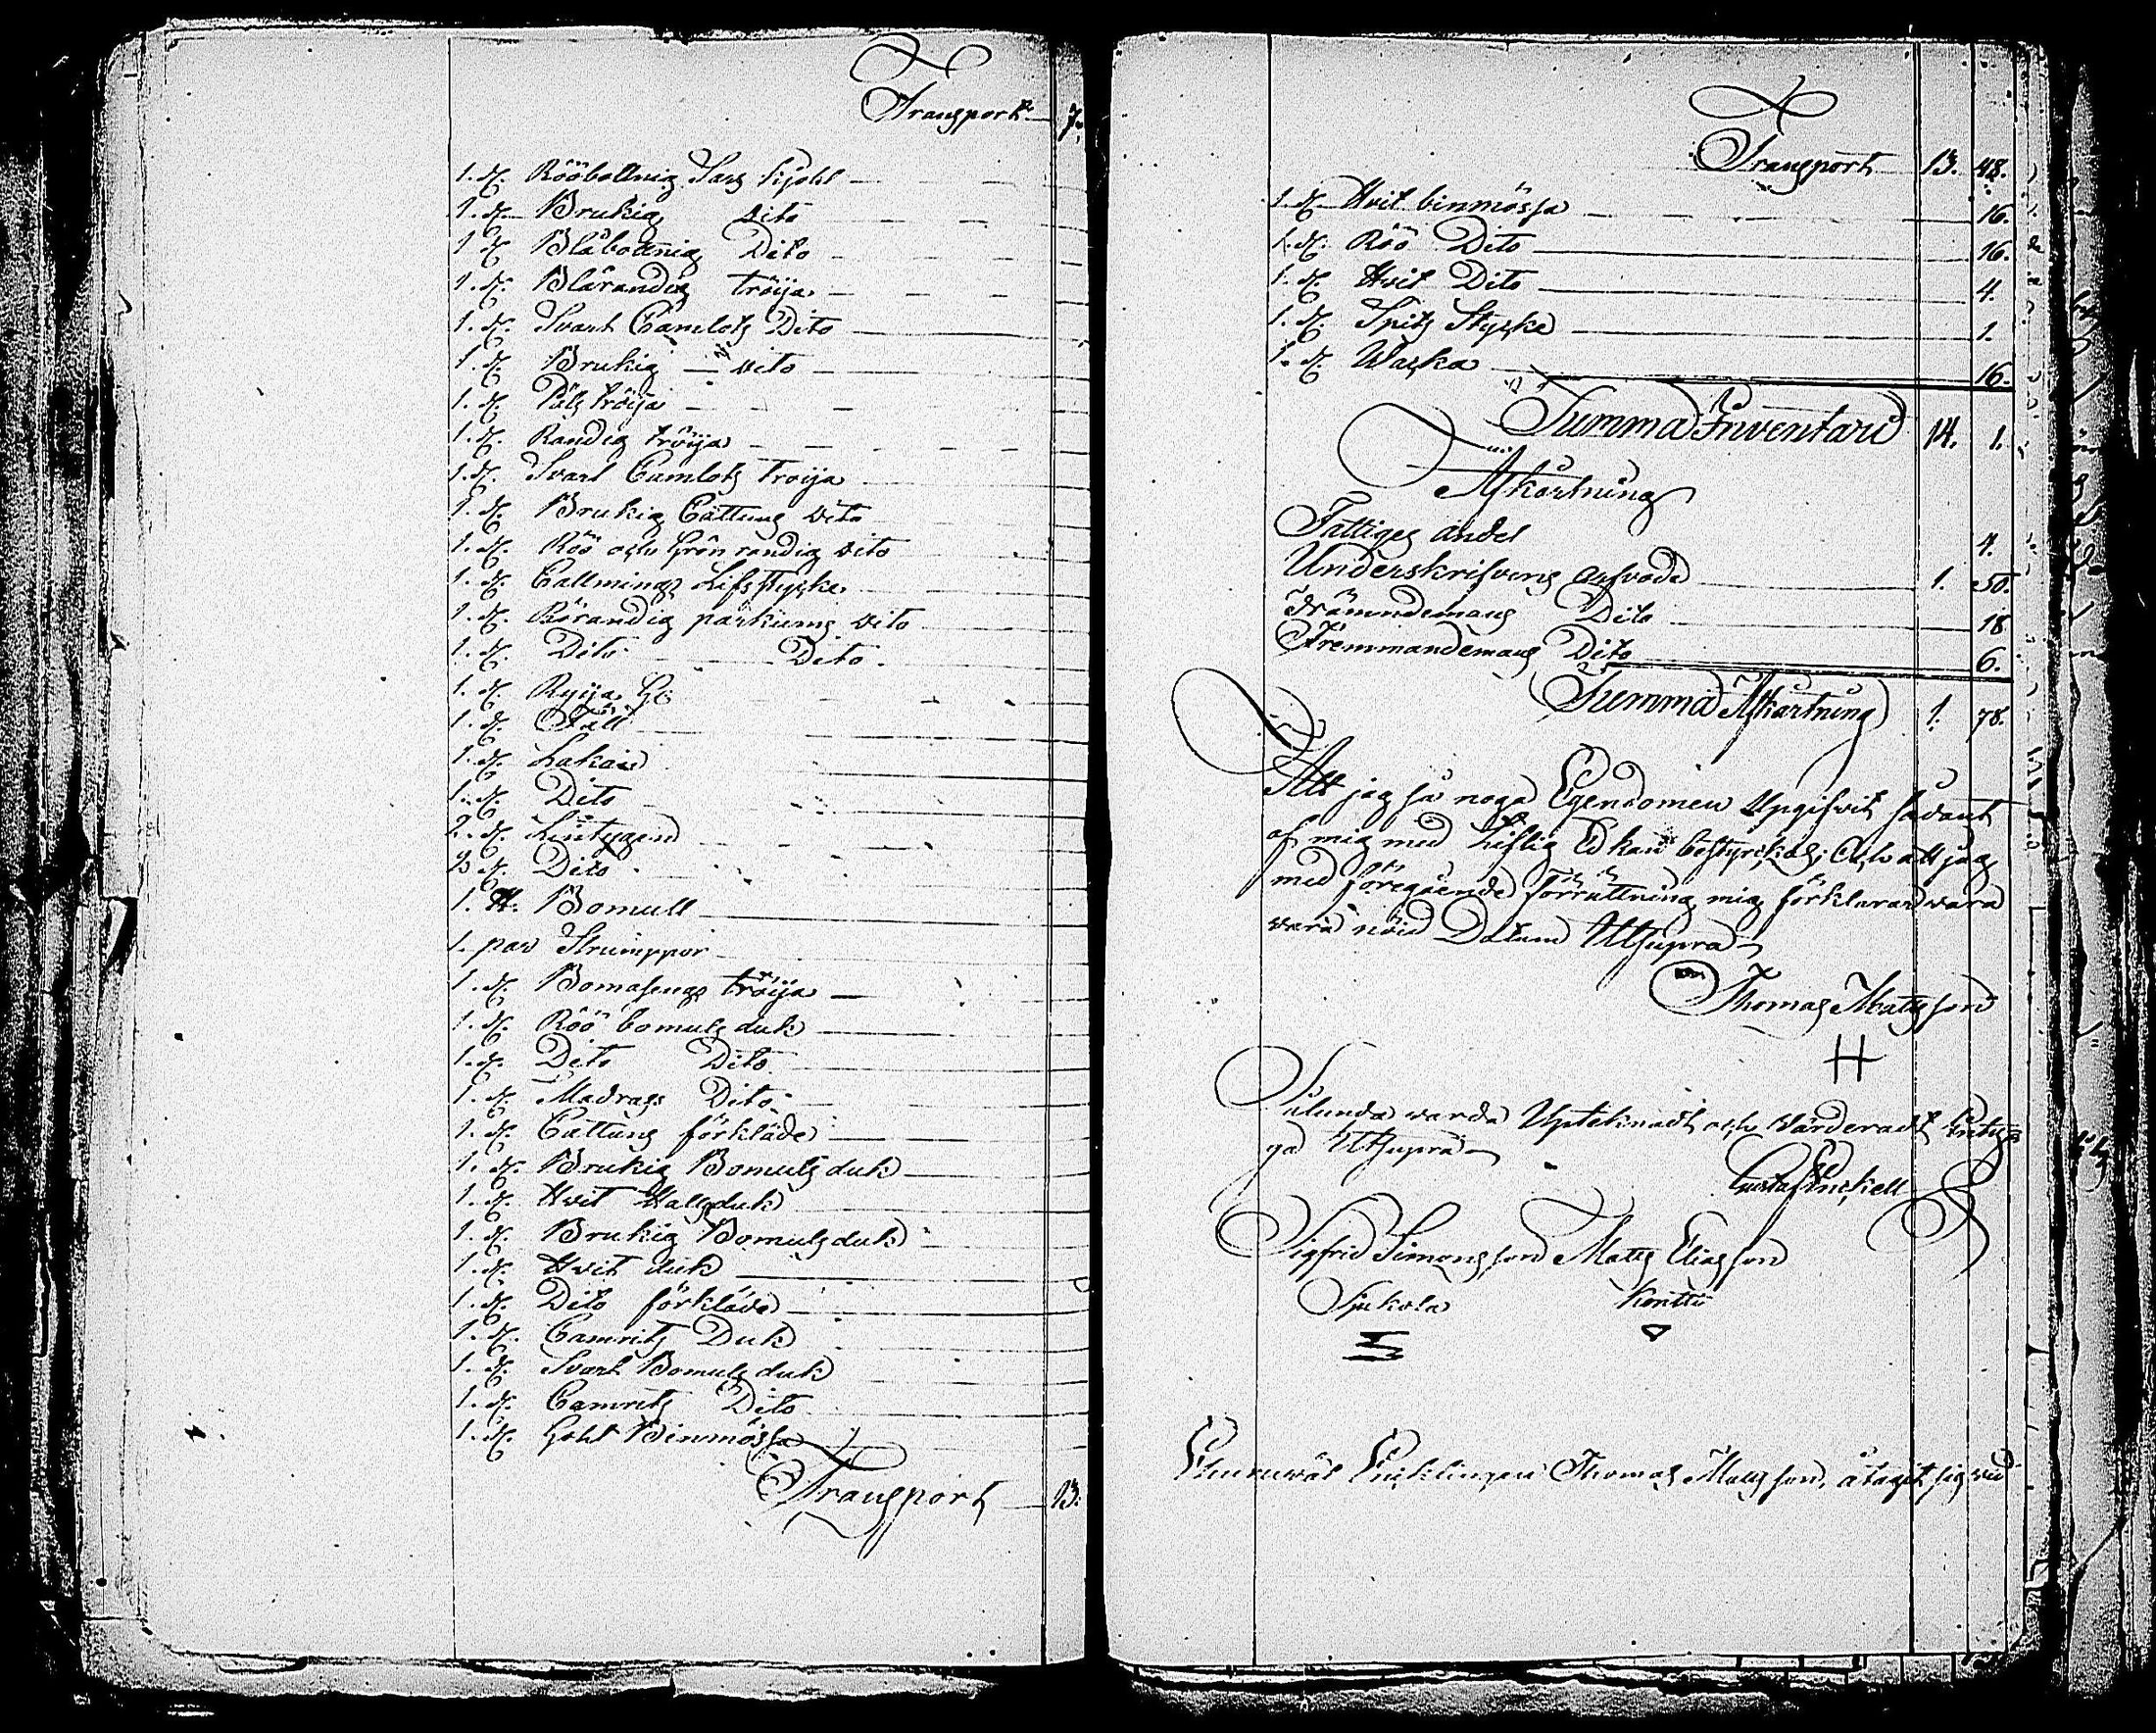 Transport 7.
1. st. Rööbottnig Sars kjohl
1. st. Brukig dito
1 st. Blåbottnig Dito
1. st. Blårandig tröija
1. st. Svart Camlots Dito
1. st. Brukig dito
1. st. Päls tröija
1. st. Randig tröija
1. st. Svart Camlots troija
1. st. Brukig Cattuns dito
1. st. Röö och Grön randig dito
1. st. Callmings Lifstycke
1. st. Rörandig parkums dito
1. st. Dito Dito
1. st. Ryija
1. st. Fäll
1. st. Lakan
1. st. Dito
2. st. Lintygend
3 st. Dito
1. ℔. Bomull
1. par Strumppor
1. st. Bomasengs tröija
1. st. Röö bomuls duk
1. st. Dito Dito
1. st. Madrags Dito
1. st. Cattuns förkläde
1. st. Brukig Bomuls duk
1. st. Hvit Halsduk
1. st. Brukig Bomulsduk
1. st. Hvit duk
1. st. Dito förkläde
1. st. Camrits Duk
1. st. Svart Bomuls duk
1. st. Camrits Dito
1. st. Gohl Binmössa
Transport 13.
Transport 13. 48.
1. st. Hvit binmössa 16.
1. st. Röö Dito 16.
1. st. Hvit Dito 4.
1. st. Spits Stycke 1.
1. st. Wacka 16.
Summa Inventarii 14. 1.
Afkortning
Fattiges andel 4.
Underskrifvens arfvode 1. 50.
Nämndemans Dito 18
Fremmandemans Dito 6.
Summa Afkortning 1. 78.
Att jag så noga Egendomen Upgifvit sådant
af mig med Liflig Ed kan bestyrckas; Och att jag
med föregående förrättning mig förklarar wara
wara nöid Datum Utsupra
Thomas Matsson
H
Sålunda warda Uptecknadt och Wärderadt Intyga
ga Utsupra
Gustaf Enckell
Sigfrid Simonsson Matts Eliasson
Sjukola Konttu
Ehuruwäl Encklingen Thomas Matsson, åtagit sig wid